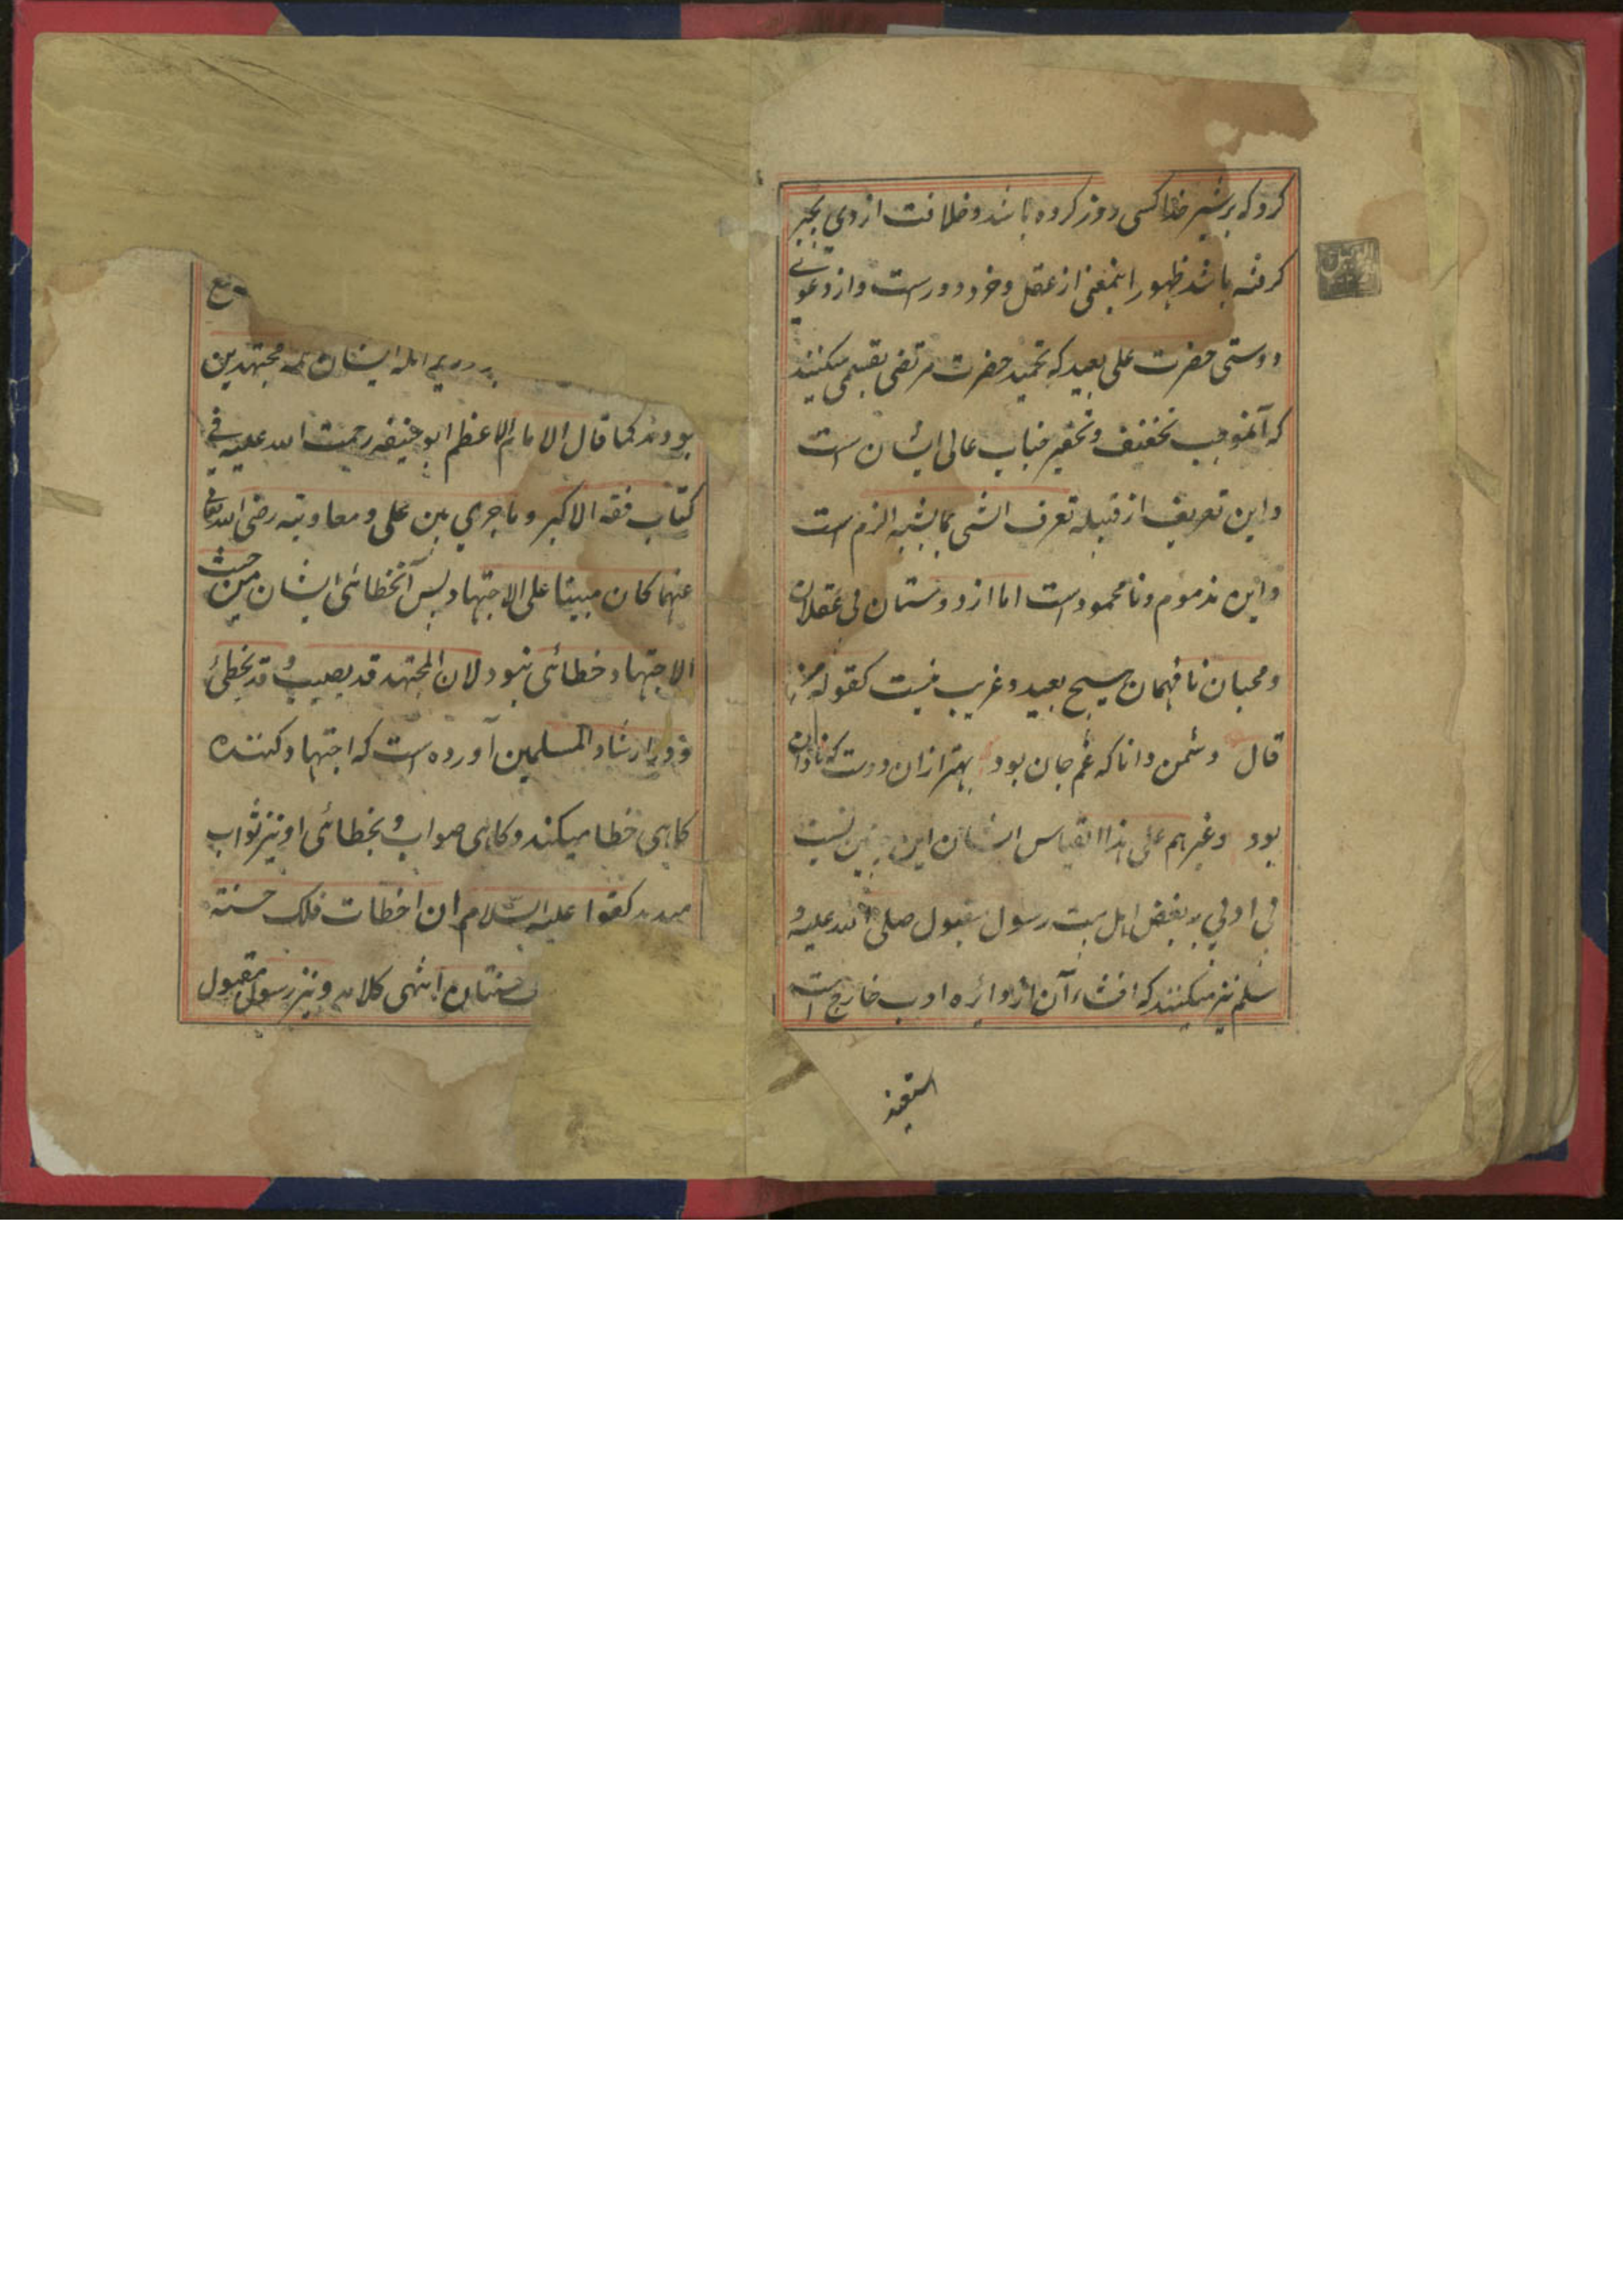 کرد که بر شیر خدا کسی روز کرده باشد و خلافت از وی بجبر
کرفته باشد ظهور اینمعنی از عقل و خرد دورست و از دعوئے
دوستی حضرت علی بعید که تحمید حضرت مرتضی بقسمی میکنند
که آنموجب تخفیف و تحقیر جناب عالی ایشان است
و این تعریف از قبیله تعرف الشی بما یشبه الزم است
و این مذموم و نامحمود است اما از دوستان بی عقلان
و محبان نافهمان هیچ بعید و غریب نیست کقوله من
قال دشمن دانا که غم جان بود بهتر ازان دوست که نادان
بود و غیرهم علی هذا القیاس ایشان این چنین نسبت
بی ادبی به بعض اهل بیت رسول مقبول صلی الله علیه و
سلم نیز میکنند که افشاء آن از دائره ادب خارج است
استعیذ
ایشان همه مجتهدین
بودند کما قال الامام الاعظم ابو حنیفه رحمت الله علیه فی
کتاب فقه الاکبر و ما جری بین علی و معاویة رضی الله تعالی
عنهما کان مبینا علی الاجتهاد پس آنخطائی ایشان من حیث
الاجتهاد خطائی نبود لان المجتهد قد یصیب و قد یخطئ
و در ارشاد المسلمین آورده است که اجتهاد کننده
کاهی خطا میکند و کاهی صواب و بخطائی او نیز ثواب
کقوا علیه السلام ان اخطات فلک حسنة
حسنتان انتهی کلامه و نیز رسول مقبول